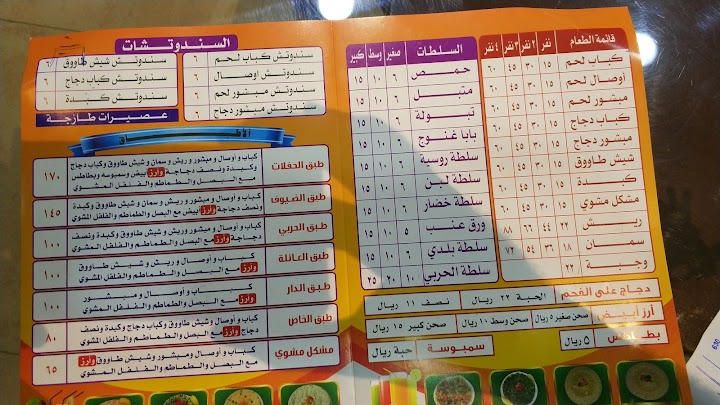 قائمة الطعام نفر ٢ نفر ٣ نفر ٤ نفر
كباب لحم ١٥ ٣٠ ٤٥ ٦٠
أوصال لحم ١٥ ٣٠ ٤٥ ٦٠
مبشور لحم ١٥ ٣٠ ٤٥ ٦٠
كباب دجاج ١٥ ٣٠ ٤٥ ٦٠
مبشور دجاج ١٥ ٣٠ ٤٥ ٦٠
شيش طاووق ١٥ ٣٠ ٤٥ ٦٠
كبدة ١٥ ٣٠ ٤٥ ٦٠
مشكل مشوي ١٥ ٣٠ ٤٥ ٦٠
ريش ٢٢ ٤٤ ٦٦ ٨٨
سمان ١٨ ٣٦ ٥٤ ٧٢
وجبة ٢٢
السلطات صغير وسط كبير
حمص ٦ ١٠ ١٥
متبل ٦ ١٠ ١٥
تبولة ٦ ١٠ ١٥
بابا غنوج ٦ ١٠ ١٥
سلطة روسية ٦ ١٠ ١٥
سلطة لبن ٦ ١٠ ١٥
سلطة خضار ٦ ١٠ ١٥
ورق عنب ٦ ١٠ ١٥
سلطة بلدي ٦ ١٠ ١٥
سلطة الحربي ١٠ ٢٠ ٢٥
دجاج على الفحم الحبة ٢٢ ريال نصف ١١ ريال
أرز أبيض صحن صغير ٥ ريال صحن وسط ١٠ ريال صحن كبير ١٥ ريال
بطاطس ٥ ريال سمبوسة حبة ريال
السندوتشات
سندوتش كباب لحم ٦ سندوتش شيش طاووق ٦
سندوتش أوصال ٦ سندوتش كباب دجاج ٦
سندوتش مبشور لحم ٦ سندوتش كبدة ٦
سندوتش مبشور دجاج ٦ عصيرات طازجة
الأطباق
طبق الحفلات كباب و أوصال و مبشور و ريش و سمان و شيش طاووق وكباب دجاج
وكبدة و نصف دجاجة وارز بيض وسمبوسه وبطاطس
مع البصل والطماطم والفلفل المشوي ١٧٠
طبق الضيوف كباب و أوصال ومبشور و ريش و سمان و شيش طاووق وكبدة
ونصف دجاج وارز مع البصل والطماطم والفلفل المشوي ١٤٥
طبق الحربي كباب و أوصال و مبشور وريش و شيش طاووق وكبدة ونصف
دجاج وارز مع البصل و الطماطم والفلفل المشوي ١٠٠
طبق العائلة كباب و أوصال و ريش و شيش طاووق
وارز مع البصل و الطماطم والفلفل المشوي ١٠٠
طبق الدار كباب و أوصال و مبشور
وارز مع البصل و الطماطم والفلفل المشوي ١٠٠
طبق الخاص كباب و أوصال وشيش طاووق وكباب دجاج وكبدة و نصف
دجاج وارز مع البصل و الطماطم والفلفل المشوي ٨٠
مشكل مشوي كباب و أوصال ومبشور وشيش طاووق وارز
مع البصل و الطماطم والفلفل المشوي ٦٥